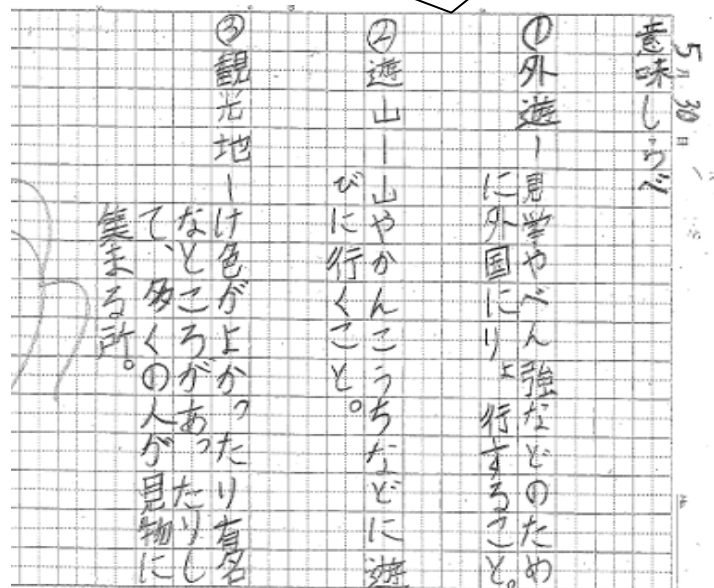 5月30日
意味しらべ
①外遊ー見学やべん強などのため
に外国にりょ行すること。
②遊山ー山やかんこうちなどに遊
びに行くこと。
③観光地ーけ色がよかったり有名
なところがあったりし
て、多くの人が見物に
集まる所。